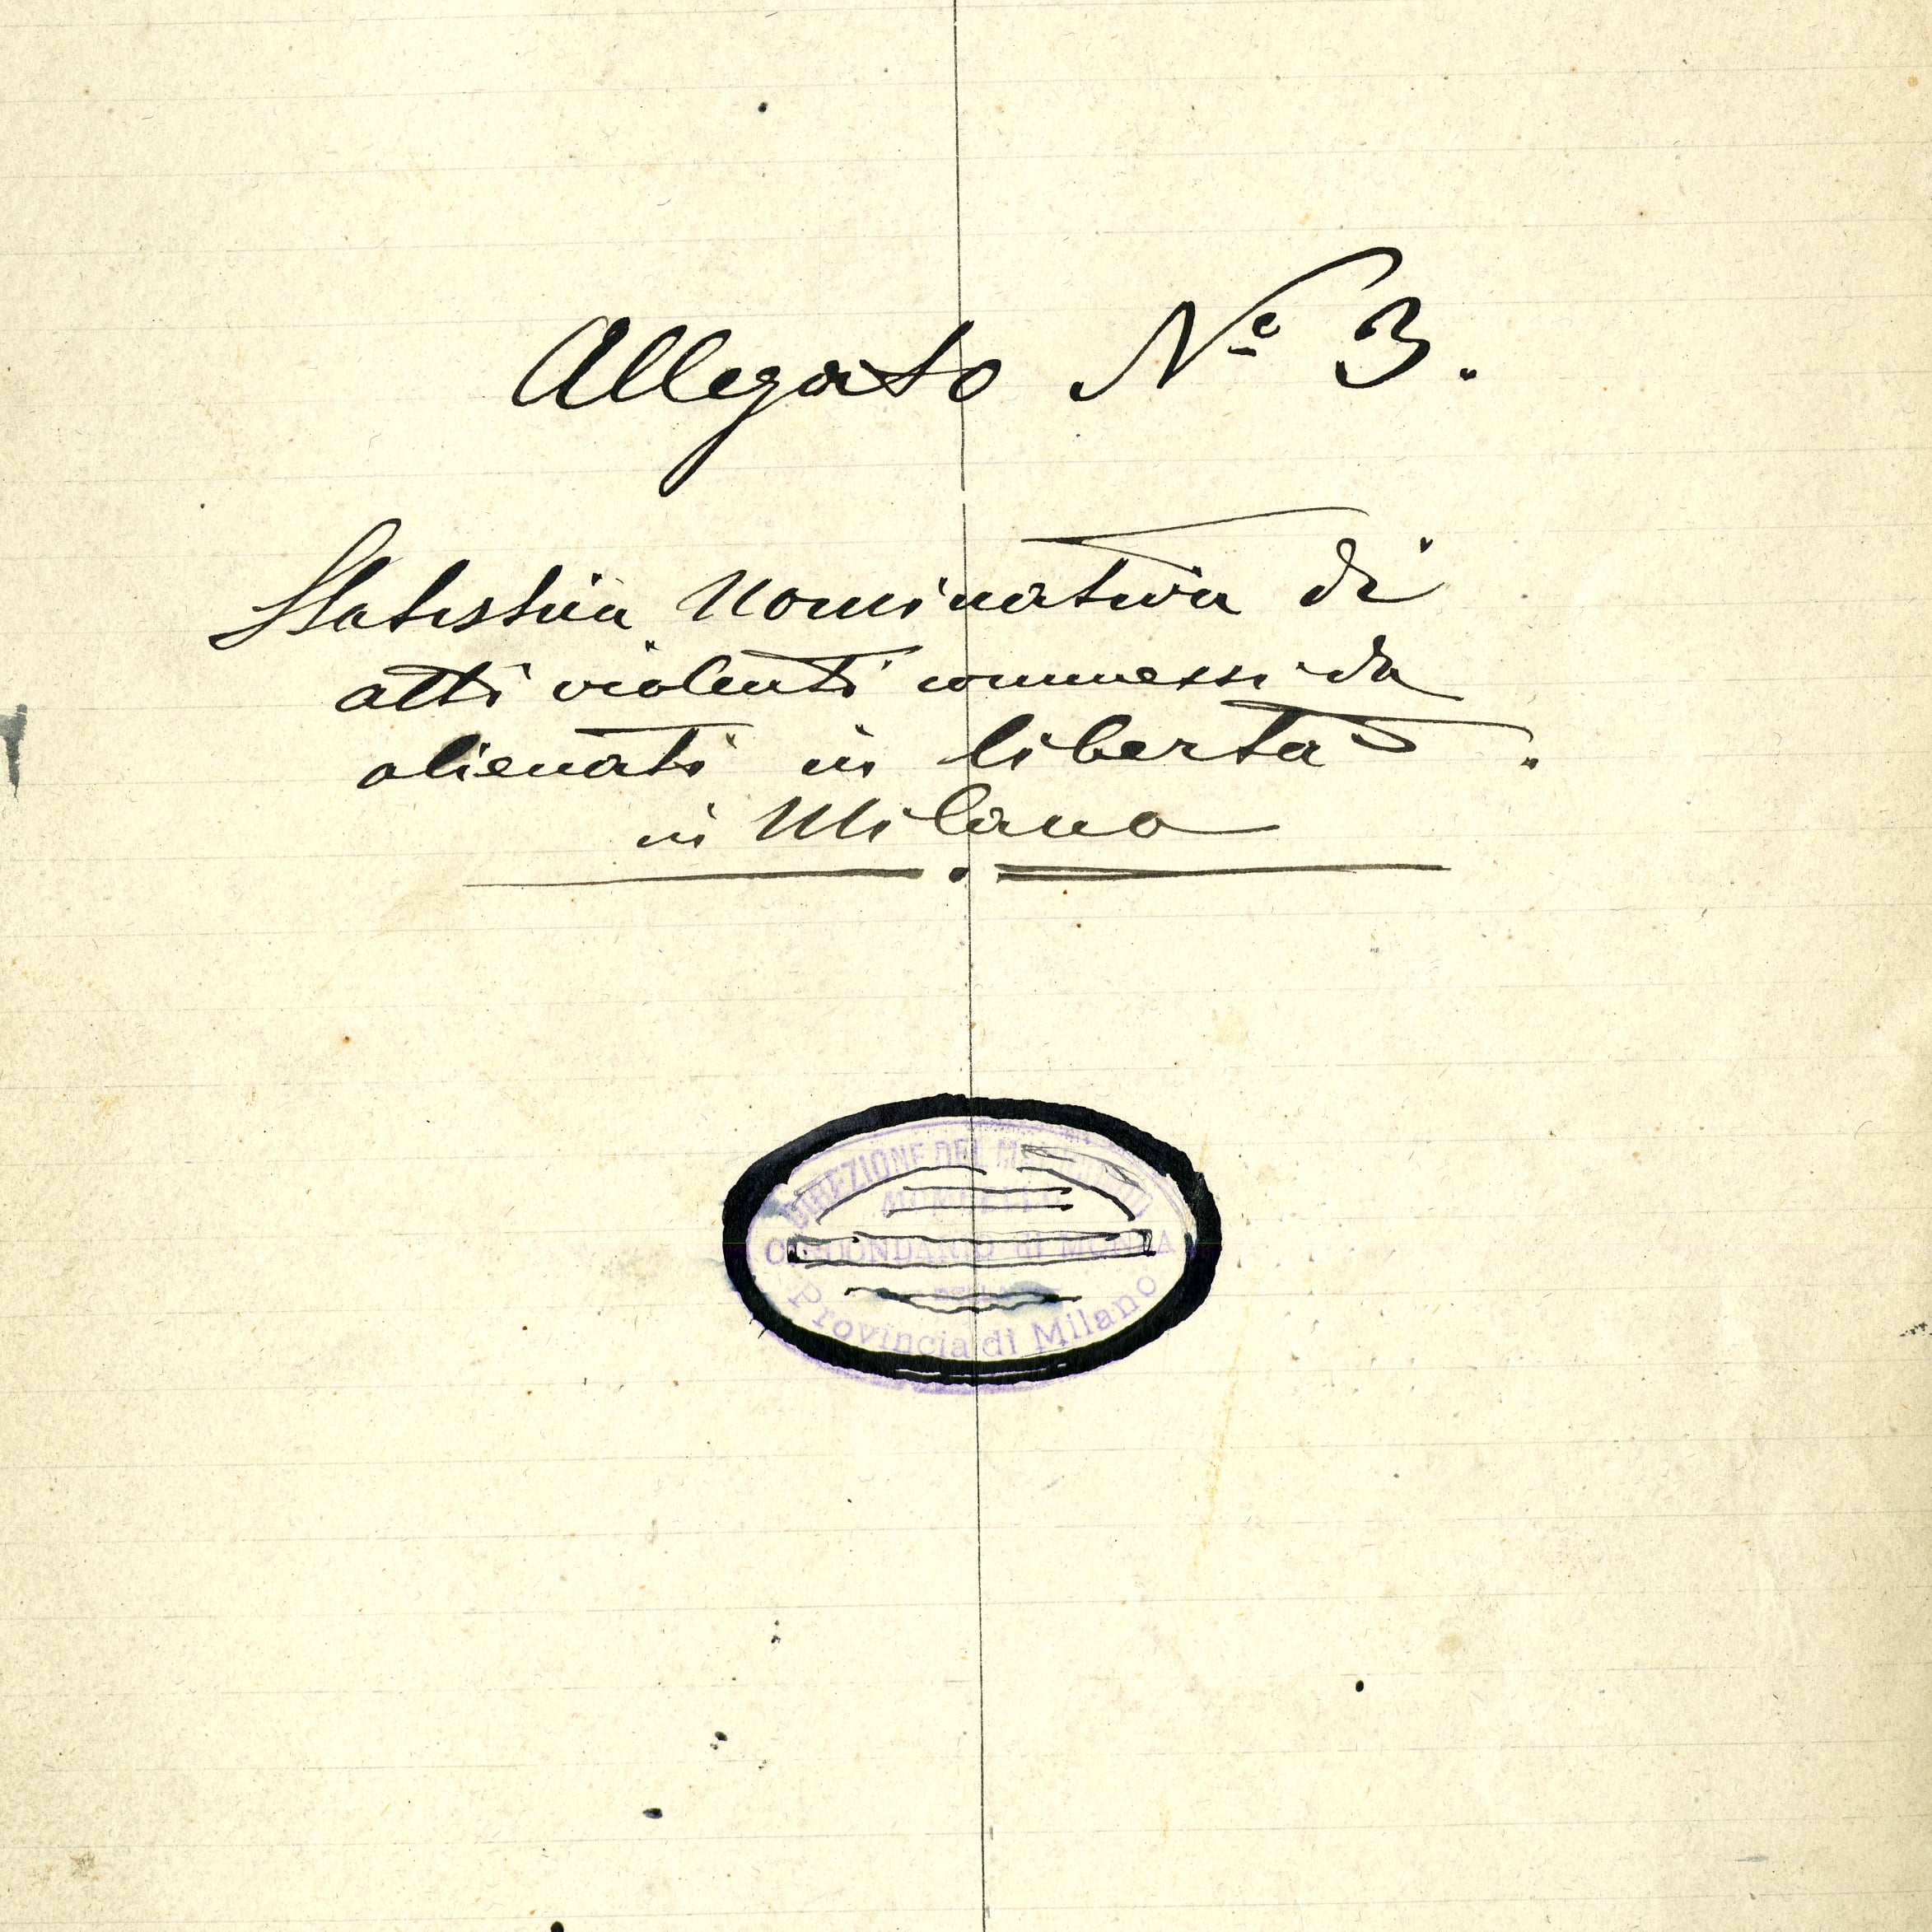 Allegato Nº 3.
Statistica Nominativa di
atti violenti commessi da
alienati in libertà.
in Milano
DIREZIONE DEL
MOMBELLO
CIRCONDARIO di MONZA
Provincia di Milano